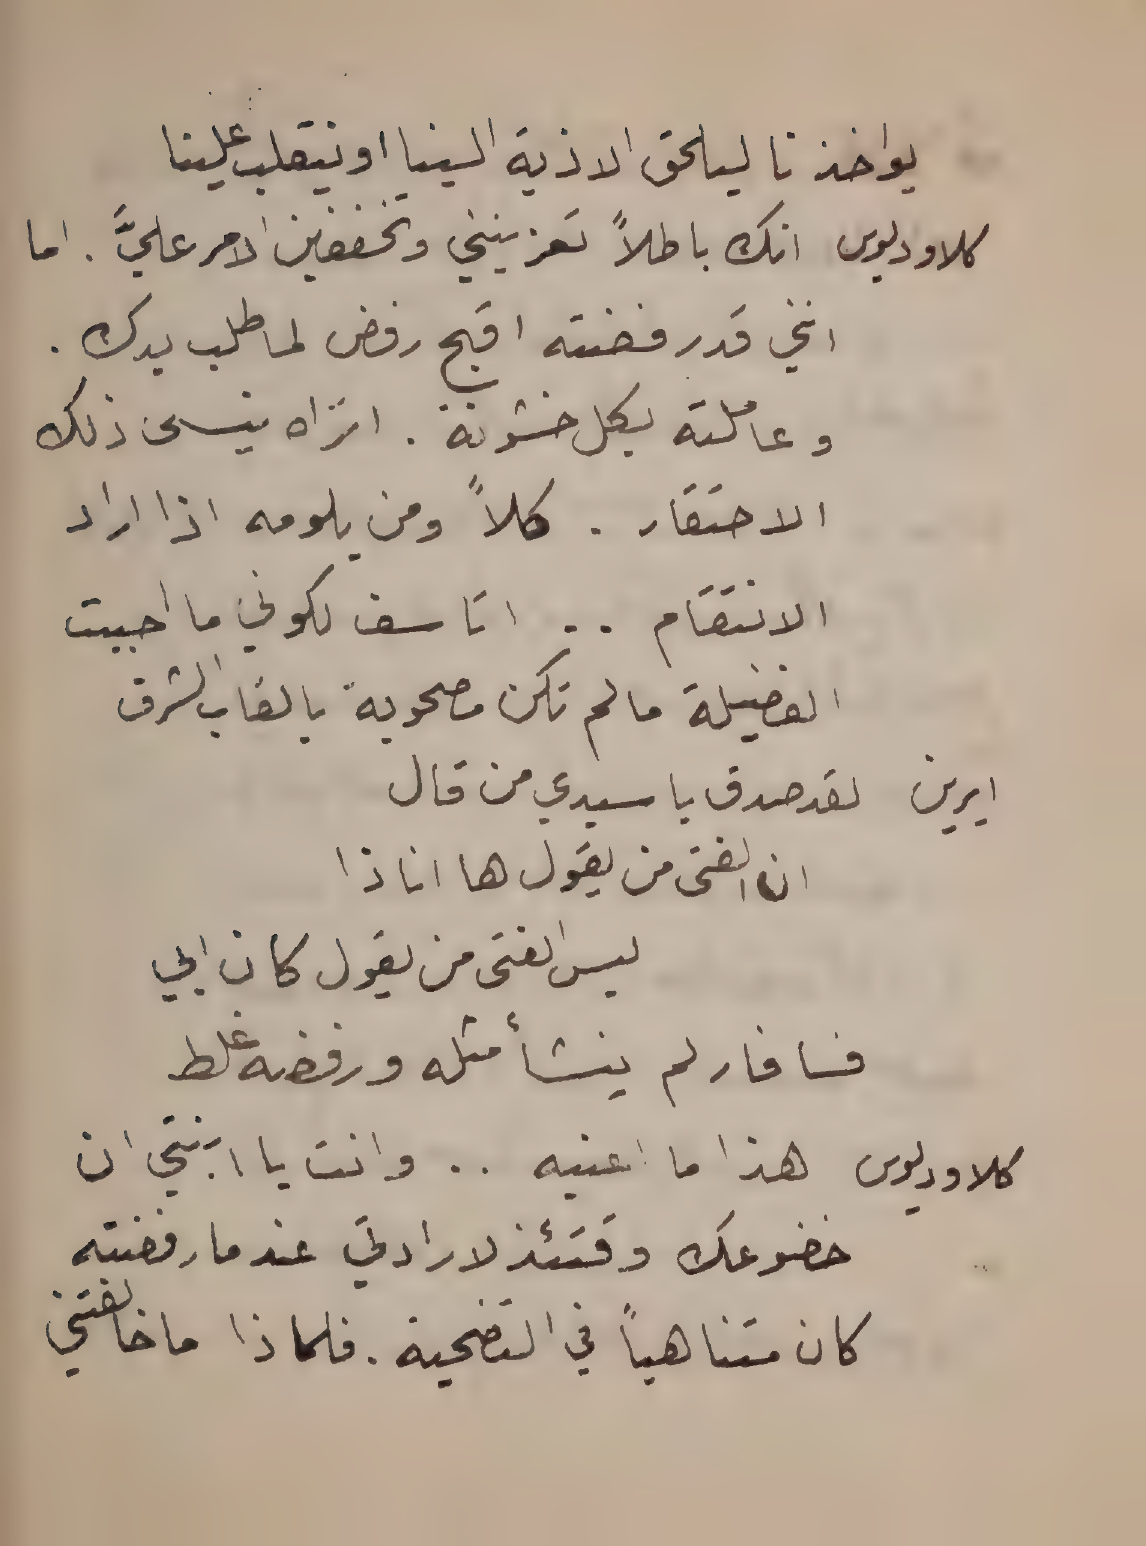 يواخذنا ليلحق الاذية الينا او ينقلب علينا
كلاوديوس انك باطلاً تعزينني وتخففين الامر عليَّ . اما
انني قد رفضته اقبح رفض لما طلب يدك .
وعاملته بكل خشونة . اتراه ينسى ذلك
الاحتقار . كلاً ومن يلومه اذا اراد
الانتقام .. اتاسف لكوني ما احببت
الفضيلة ما لم تكن مصحوبة بالقاب الشرف
ايرين لقد صدق يا سيدي من قال
ان الفتى من يقول ها انا ذا
ليس الفتى من يقول كان ابي
فسافار لم ينشأ مثله ورفضه غلط
كلاوديوس هذا ما اعنيه .. وانت يا ابنتي ان
خضوعك وقتئذ لارادتي عندما رفضته
كان متناهياً في التضحية . فلماذا ما خالفتني